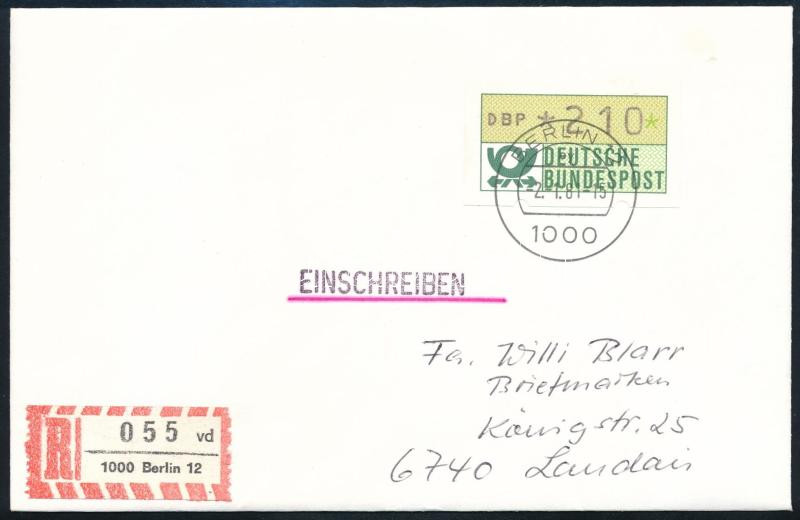 DBP *210*
DEUTSCHE
BUNDESPOST
BERLIN
-2.-1.81-15
1000
EINSCHREIBEN
Fa. Willi Blarr
Briefmarken
Königstr. 25
6740 Landau
R 055 vd
1000 Berlin 12